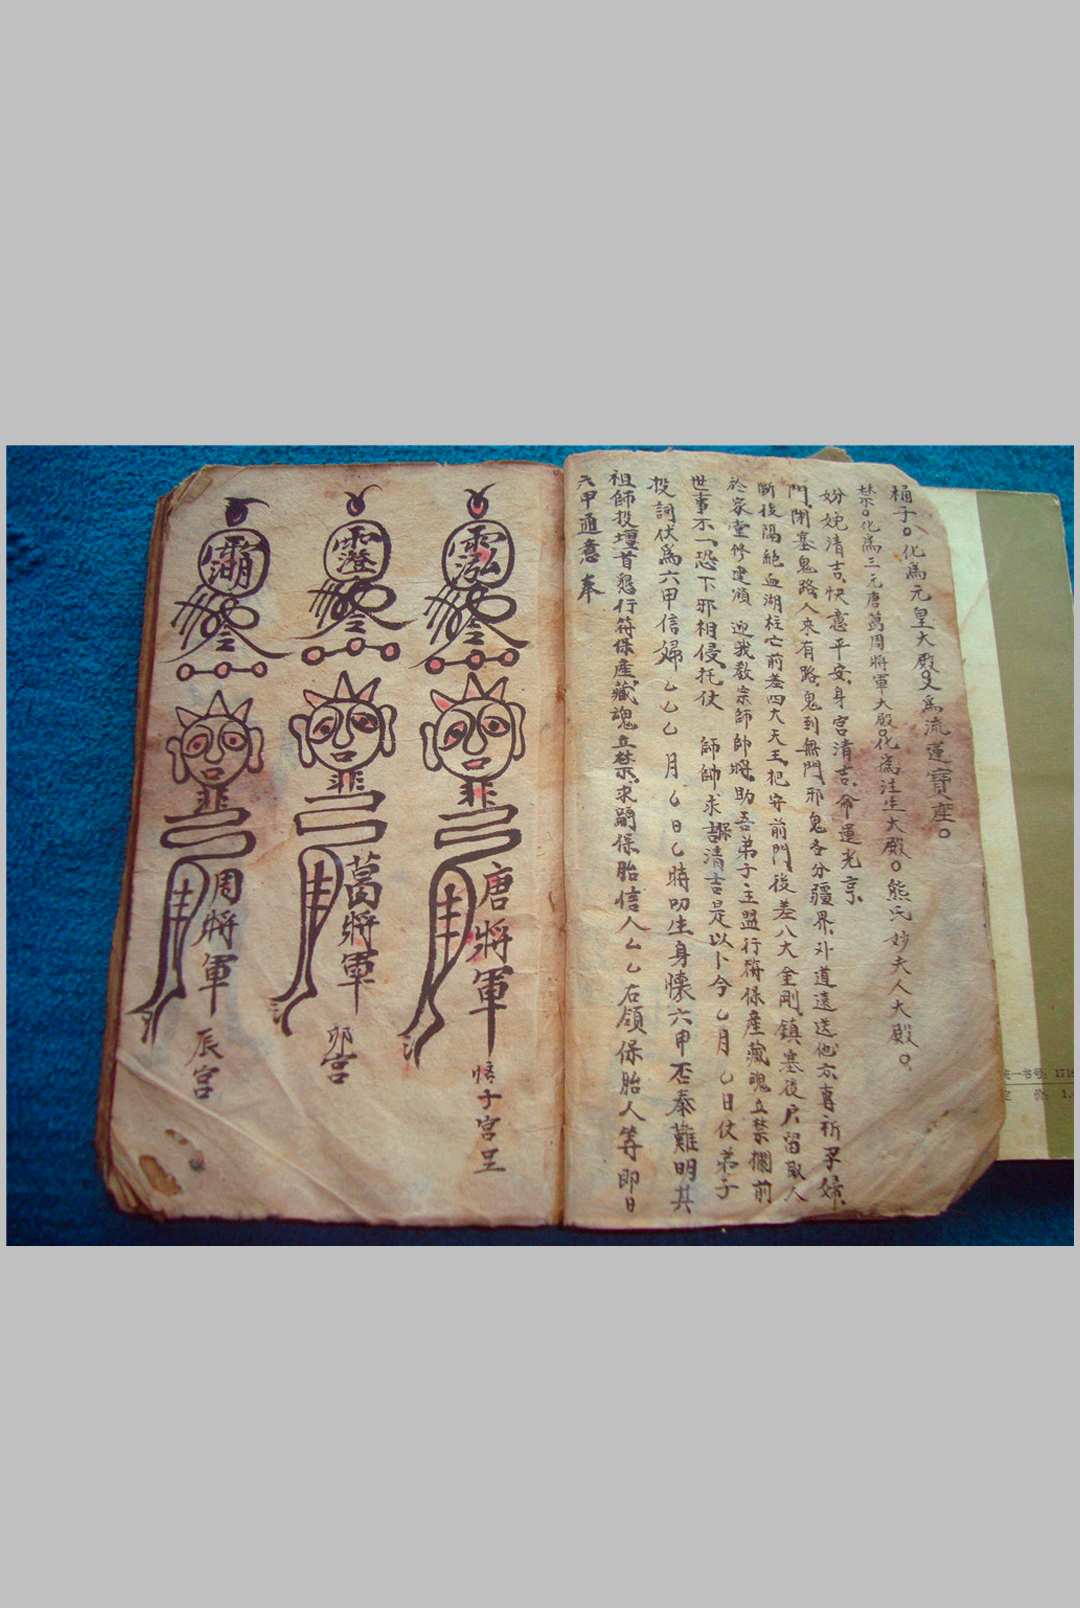 桶子。化為元皇大殿。又為流蓮寶座。
禁。化為三元唐萬周將軍大殿。化為注生大殿。熊氏妙夫人大殿。
六甲通意 奉
祖師投壇首懇行符保產藏魂立禁求嗣保胎信人厶乙右領保胎人等即日
投詞伏為六甲信婦乙乙乙月日乙時叨生身懷六甲否泰難明共
世事不一恐下邪相侵托仗 師帥求保清吉是以卜今乙月乙日仗弟子
於家堂修建順 迎我教宗師帥將助吾弟子主盟行符保產藏魂立禁攔前
斷後隔絕血湖枉亡前差四大天王把守前門後差八大金剛鎮塞後戶留取人
門閉塞鬼路人來有路鬼到無門邪鬼各分疆界外道遠送他方專祈孕婦
分娩清吉快意平安身宮清吉命運光亨
唐將軍 子宮呈
葛將軍 卯宮
周將軍 辰宮
一书号 171
价 1.